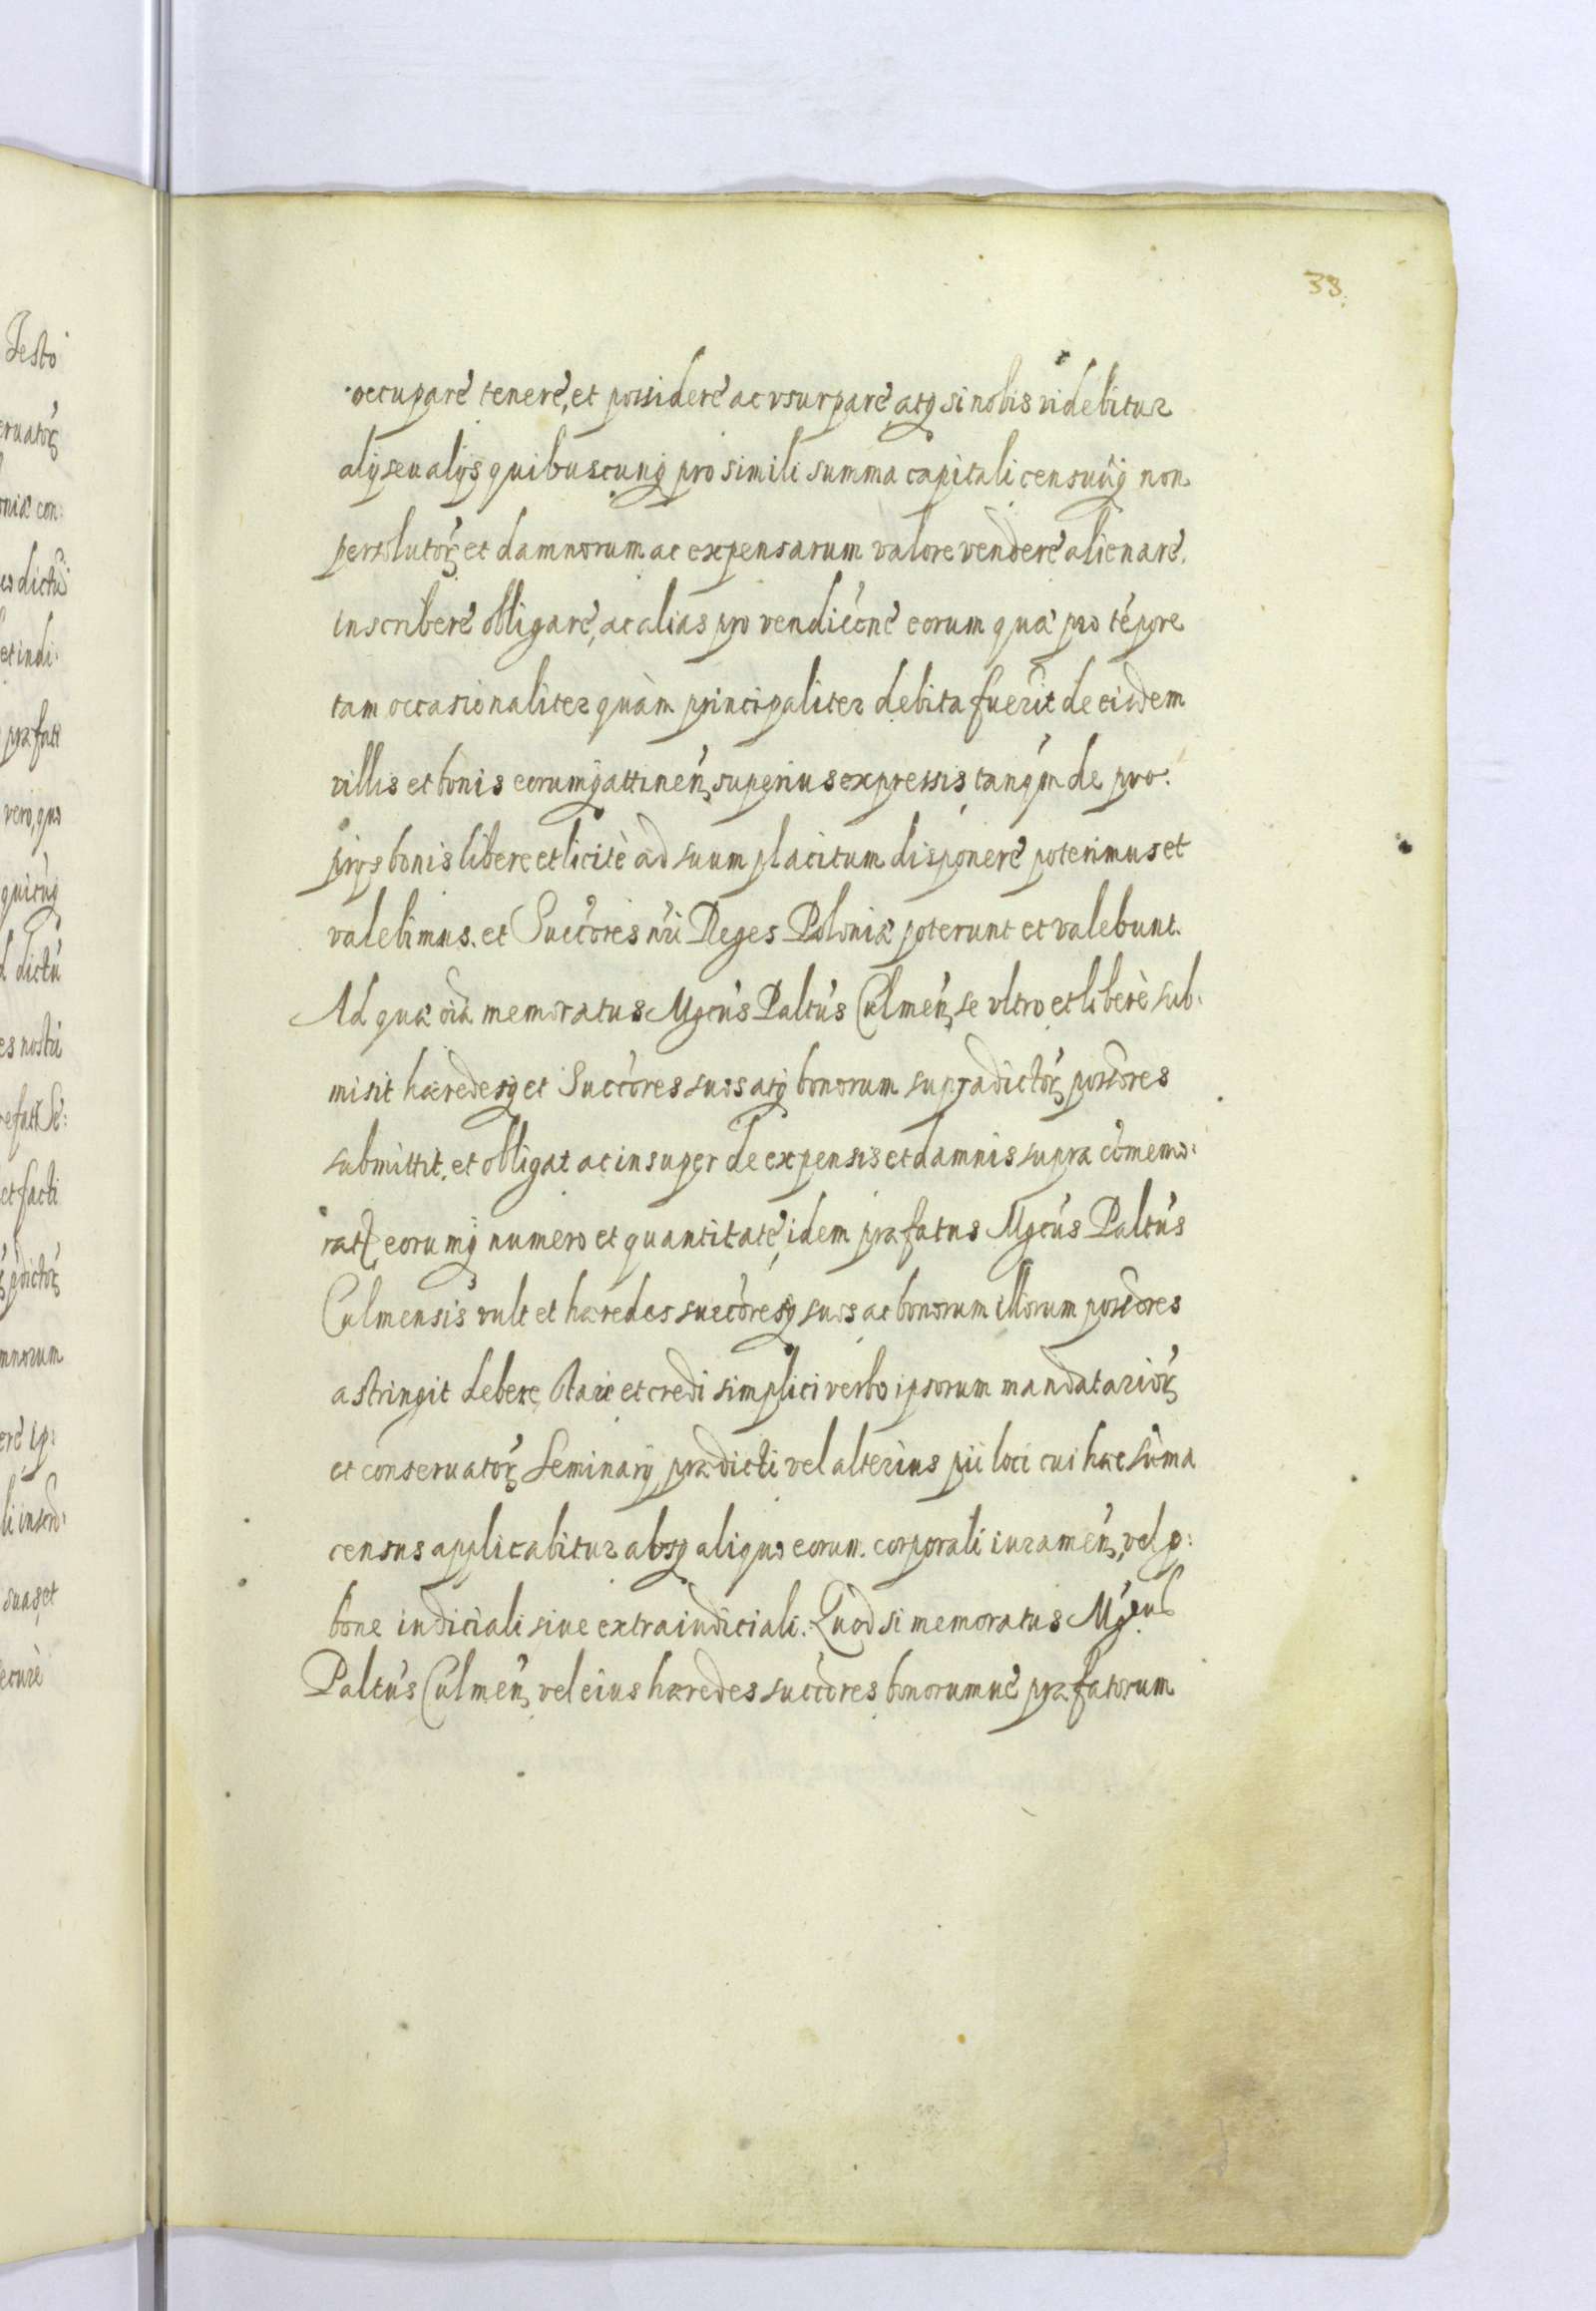 33.
occuparè tenerè, et possiderè ac vsurparè atq si nobis videbitur
alij seu alijs quibuscunq pro simili summa capitali censuúq non
persolutoꝝ et damnorum ac expensarum valore venderè alienarè.
inscriberè obligarè, ac alias pro vendicónè eorum quæ pro tépore
tam occasionaliter quàm principaliter debita fuerit de eisdem
villis et bonis eorumq attinen̄, superius expressis, tanq̃m de pro:
prijs bonis libere et licitè ad suum placitum disponerè poterimus et
valebimus. et Succ̄ores nr̄i Reges Poloniæ poterunt et valebunt.
Ad quæ oīa memoratus Mgcús Paltús Culmen̄, se vltro et liberè sub:
misit hæredesq et Succ̄ores suos atq bonorum supradictoꝝ poss̄ores
submittit. et obligat ac insuper de expensis et damnis supra cōmemo:
ratꝭ, eorumq numero et quantitatè, idem præfatus Mgcús Paltús
Culmensis vult et hæredes succ̄oresq suos ac bonorum illorum poss̄ores
astringit debere, stari et credi simplici verbo ipsorum mandatarioꝝ
et conseruatoꝝ Seminarij prædicti vel alterius pii loci cui hæc sūma
census applicabitur absq aliquo eorum corporali iuramen̄, vel p:
bone iudiciali siue extraiudiciali. Quod si memoratus Mgcus
Paltús Culmen̄, vel eius hæredes succ̄ores bonorumuè præfatorum
Testo
eruatoꝝ
oniæ con:
es dictū
et indi:
præfati
vero, quo
quicūq
d dictū
es nostri
refati Se:
et facti
p̄dictoꝝ
mnorum
erè ip:
li insord:
suas, et
ecurè